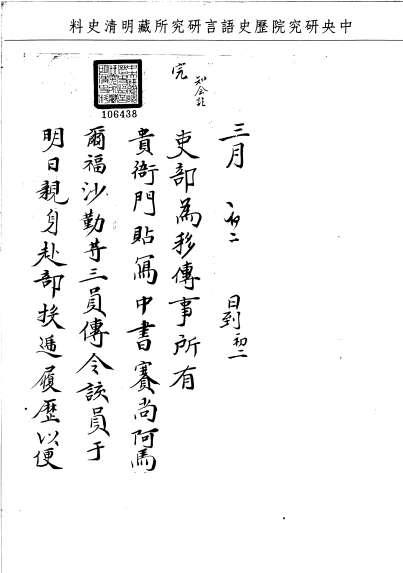 中央研究院歷史語言研究所藏明清史料
106438
完
知会訖
三月 初二 日到 初二
吏部為移傳事所有
貴衙門貼寫中書賽尚阿馬
爾福沙勤等三員傳令該員于
明日親身赴部投遞履歷以便